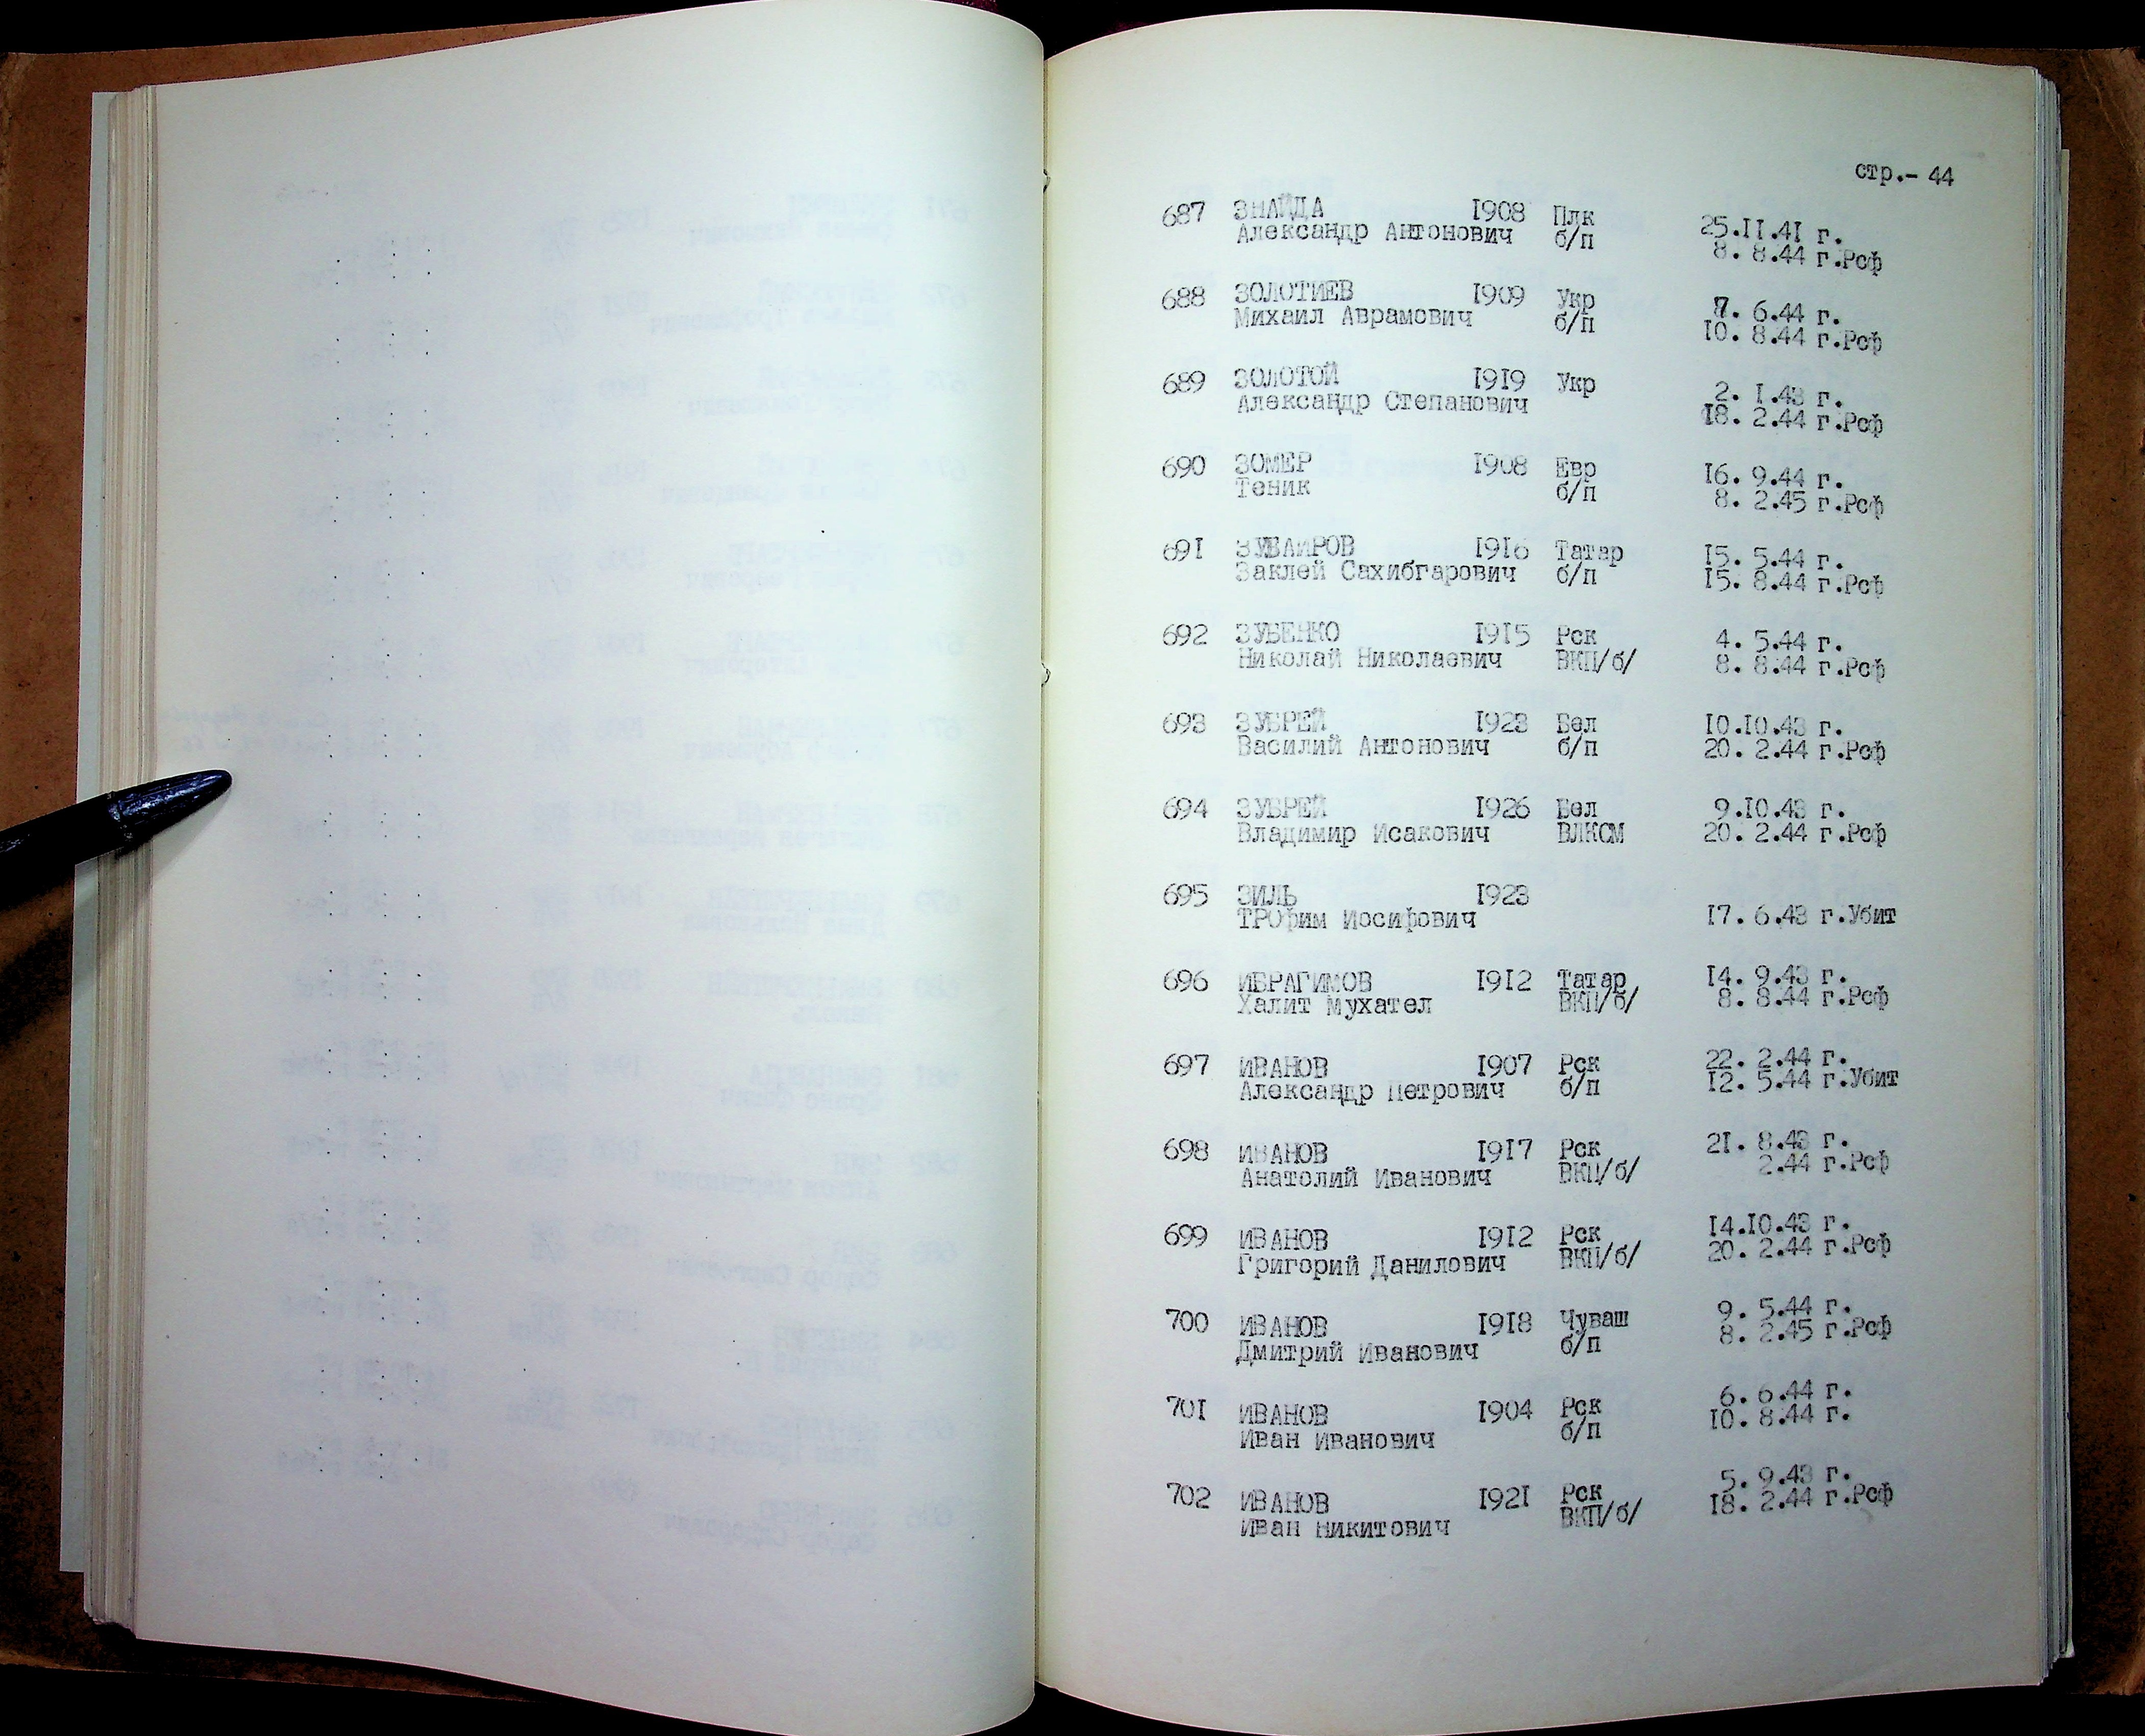 стр.- 44
687 ЗНАЙДА 1908 Плк 25.II.41 г.
Александр Антонович б/п 8. 8.44 г.Рсф
688 ЗОЛОТИЕВ 1909 Укр 7. 6.44 г.
Михаил Аврамович б/п 10. 8.44 г.Рсф
689 ЗОЛОТОЙ 1919 Укр 2. 1.43 г.
Александр Степанович 18. 2.44 г.Рсф
690 ЗОМЕР 1908 Евр 16. 9.44 г.
Теник б/п 8. 2.45 г.Рсф
691 ЗУБАИРОВ 1916 Татар 15. 5.44 г.
Заклей Сахибгарович б/п 15. 8.44 г.Рсф
692 ЗУБЕНКО 1915 Рск 4. 5.44 г.
Николай Николаевич ВКП/б/ 8. 8.44 г.Рсф
693 ЗУБРЕЙ 1923 Бел 10.10.43 г.
Василий Антонович б/п 20. 2.44 г.Рсф
694 ЗУБРЕЙ 1926 Бел 9.10.43 г.
Владимир Исакович ВЛКСМ 20. 2.44 г.Рсф
695 ЗИЛЬ 1923
ТРОфим Иосифович 17. 6.43 г.Убит
696 ИБРАГИМОВ 1912 Татар 14. 9.43 г.
Халит Мухател ВКП/б/ 8. 8.44 г.Рсф
697 ИВАНОВ 1907 Рск 22. 2.44 г.
Александр Петрович б/п 12. 5.44 г.Убит
698 ИВАНОВ 1917 Рск 21. 8.43 г.
Анатолий Иванович ВКП/б/ 2.44 г.Рсф
699 ИВАНОВ 1912 Рск 14.10.43 г.
Григорий Данилович ВКП/б/ 20. 2.44 г.Рсф
700 ИВАНОВ 1918 Чуваш 9. 5.44 г.
Дмитрий Иванович б/п 8. 2.45 г.Рсф
701 ИВАНОВ 1904 Рск 6. 6.44 г.
Иван Иванович б/п 10. 8.44 г.
702 ИВАНОВ 1921 Рск 5. 9.43 г.
Иван Никитович ВКП/б/ 18. 2.44 г.Рсф